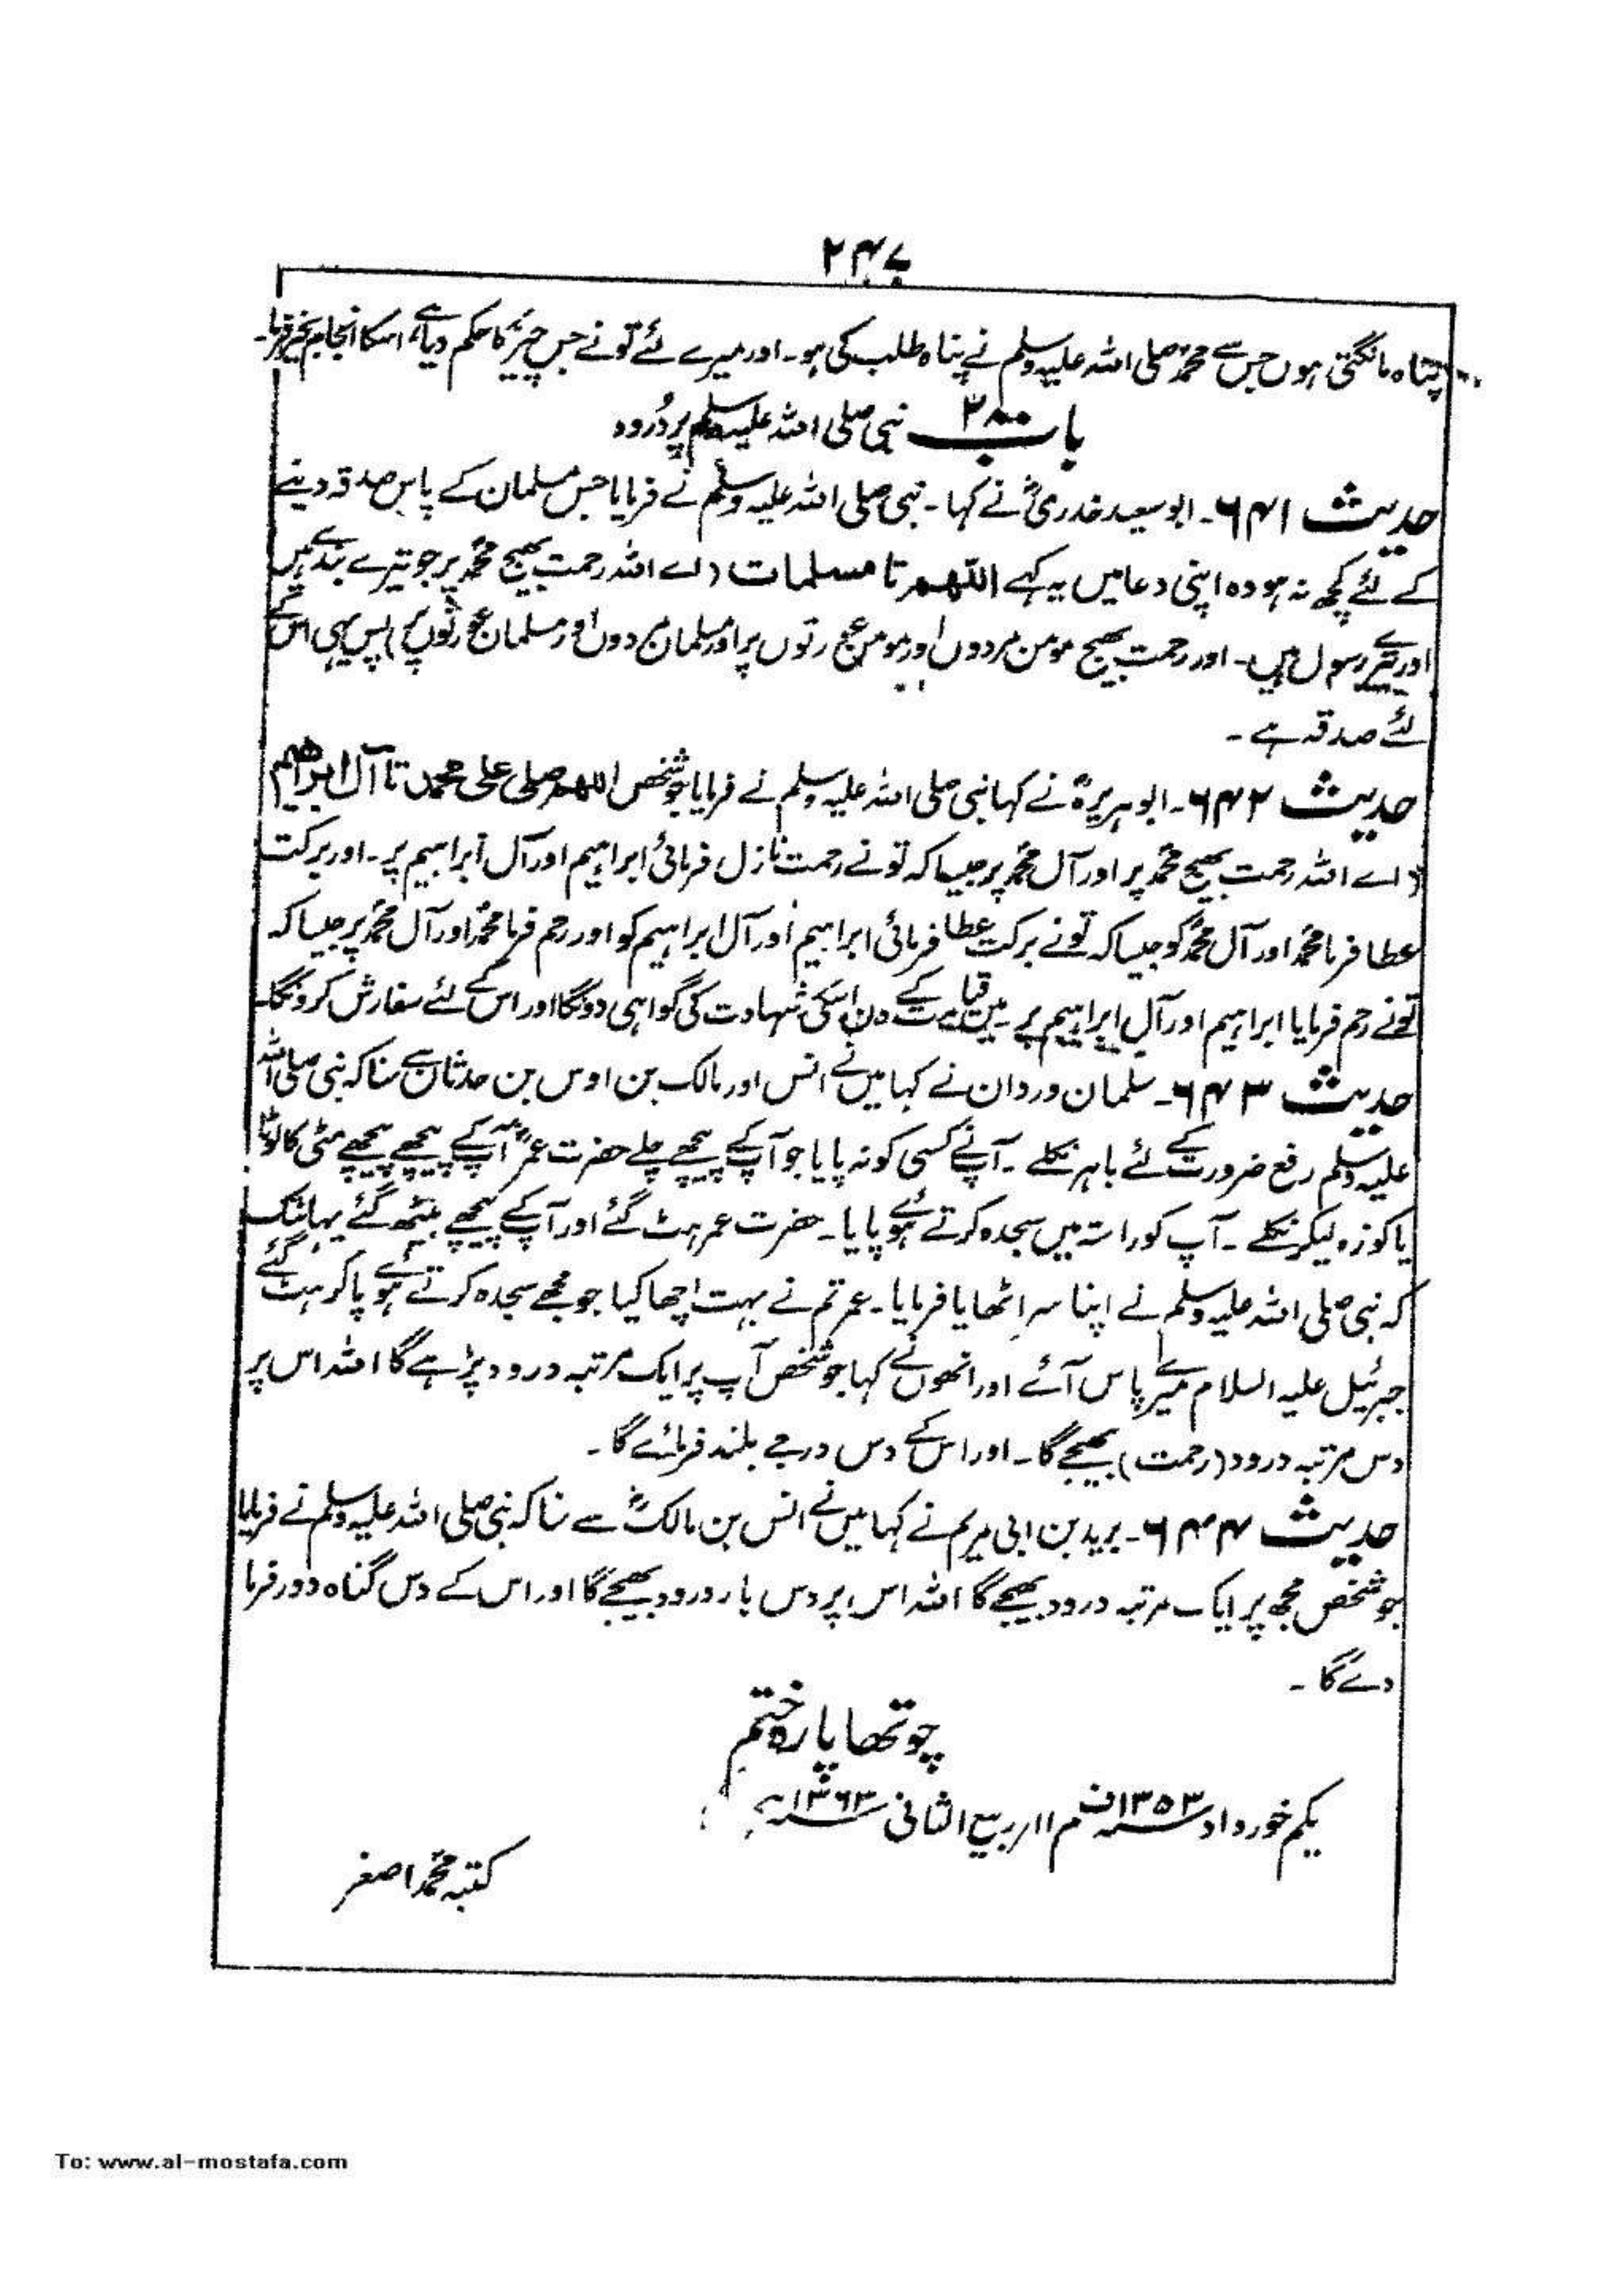 ۲۴۷
پناہ مانگتی ہوں جس سے محمد صلی اللہ علیہ وسلم نے پناہ طلب کی ہو۔ اور میرے لئے تو نے جس چیز کا حکم دیا ہے، اسکا انجام بخیر فرما۔
باب ۲۸۰ نبی صلی اللہ علیہ وسلم پر دُرود
حدیث ۶۴۱۔ ابو سعید خدریؓ نے کہا۔ نبی صلی اللہ علیہ وسلم نے فرمایا جس مسلمان کے پاس صدقہ دینے
کے لئے کچھ نہ ہو وہ اپنی دعا میں یہ کہے اللّٰھم تا مسلمات (اے اللہ رحمت بھیج محمدؐ پر جو تیرے بندے ہیں
اور تیرے رسول ہیں۔ اور رحمت بھیج مومن مردوں اور مومن عورتوں پر اور مسلمان مردوں اور مسلمان عورتوں پر) پس یہی اس کے
لئے صدقہ ہے۔
حدیث ۶۴۲۔ ابوہریرہؓ نے کہا نبی صلی اللہ علیہ وسلم نے فرمایا جو شخص اللھم صلی علی محمد تا آل ابراھیم
(اے اللہ رحمت بھیج محمدؐ پر اور آل محمدؐ پر جیسا کہ تو نے رحمت نازل فرمائی ابراہیم اور آل ابراہیم پر۔ اور برکت
عطا فرما محمدؐ اور آل محمدؐ کو جیسا کہ تو نے برکت عطا فرمائی ابراہیم اور آل ابراہیم کو اور رحم فرما محمدؐ اور آل محمدؐ پر جیسا کہ
تو نے رحم فرمایا ابراہیم اور آل ابراہیم پر۔ میں قیامت کے دن اسکی شہادت کی گواہی دونگا اور اس کے لئے سفارش کرونگا۔
حدیث ۶۴۳۔ سلمان وردان نے کہا میں نے انس اور مالک بن اوس بن حدثان سے سنا کہ نبی صلی اللہ
علیہ وسلم رفع ضرورت کے لئے باہر نکلے۔ آپ نے کسی کو نہ پایا جو آپ کے پیچھے چلے حضرت عمرؓ آپ کے پیچھے پیچھے مٹی کا لوٹا
یا کوزہ لیکر نکلے۔ آپ کو راستہ میں سجدہ کرتے ہوئے پایا۔ حضرت عمر ہٹ گئے اور آپ کے پیچھے بیٹھ گئے یہانتک
کہ نبی صلی اللہ علیہ وسلم نے اپنا سر اٹھایا فرمایا۔ عمر تم نے بہت اچھا کیا جو مجھے سجدہ کرتے ہوئے پا کر ہٹ گئے
جبرئیل علیہ السلام میرے پاس آئے اور انھوں نے کہا جو شخص آپ پر ایک مرتبہ درود پڑہے گا اللہ اس پر
دس مرتبہ درود (رحمت) بھیجے گا۔ اور اس کے دس درجے بلند فرمائے گا۔
حدیث ۶۴۴۔ برید بن ابی مریم نے کہا میں نے انس بن مالکؓ سے سنا کہ نبی صلی اللہ علیہ وسلم نے فرمایا
جو شخص مجھ پر ایک مرتبہ درود بھیجے گا اللہ اس پر دس بار درود بھیجے گا اور اس کے دس گناہ دور فرما
دے گا۔
چوتھا پارہ ختم
یکم خورداد ۱۳۵۳ف م ۱۱ ربیع الثانی ۱۳۶۳ھ
کتبہ محمد اصغر
To: www.al-mostafa.com